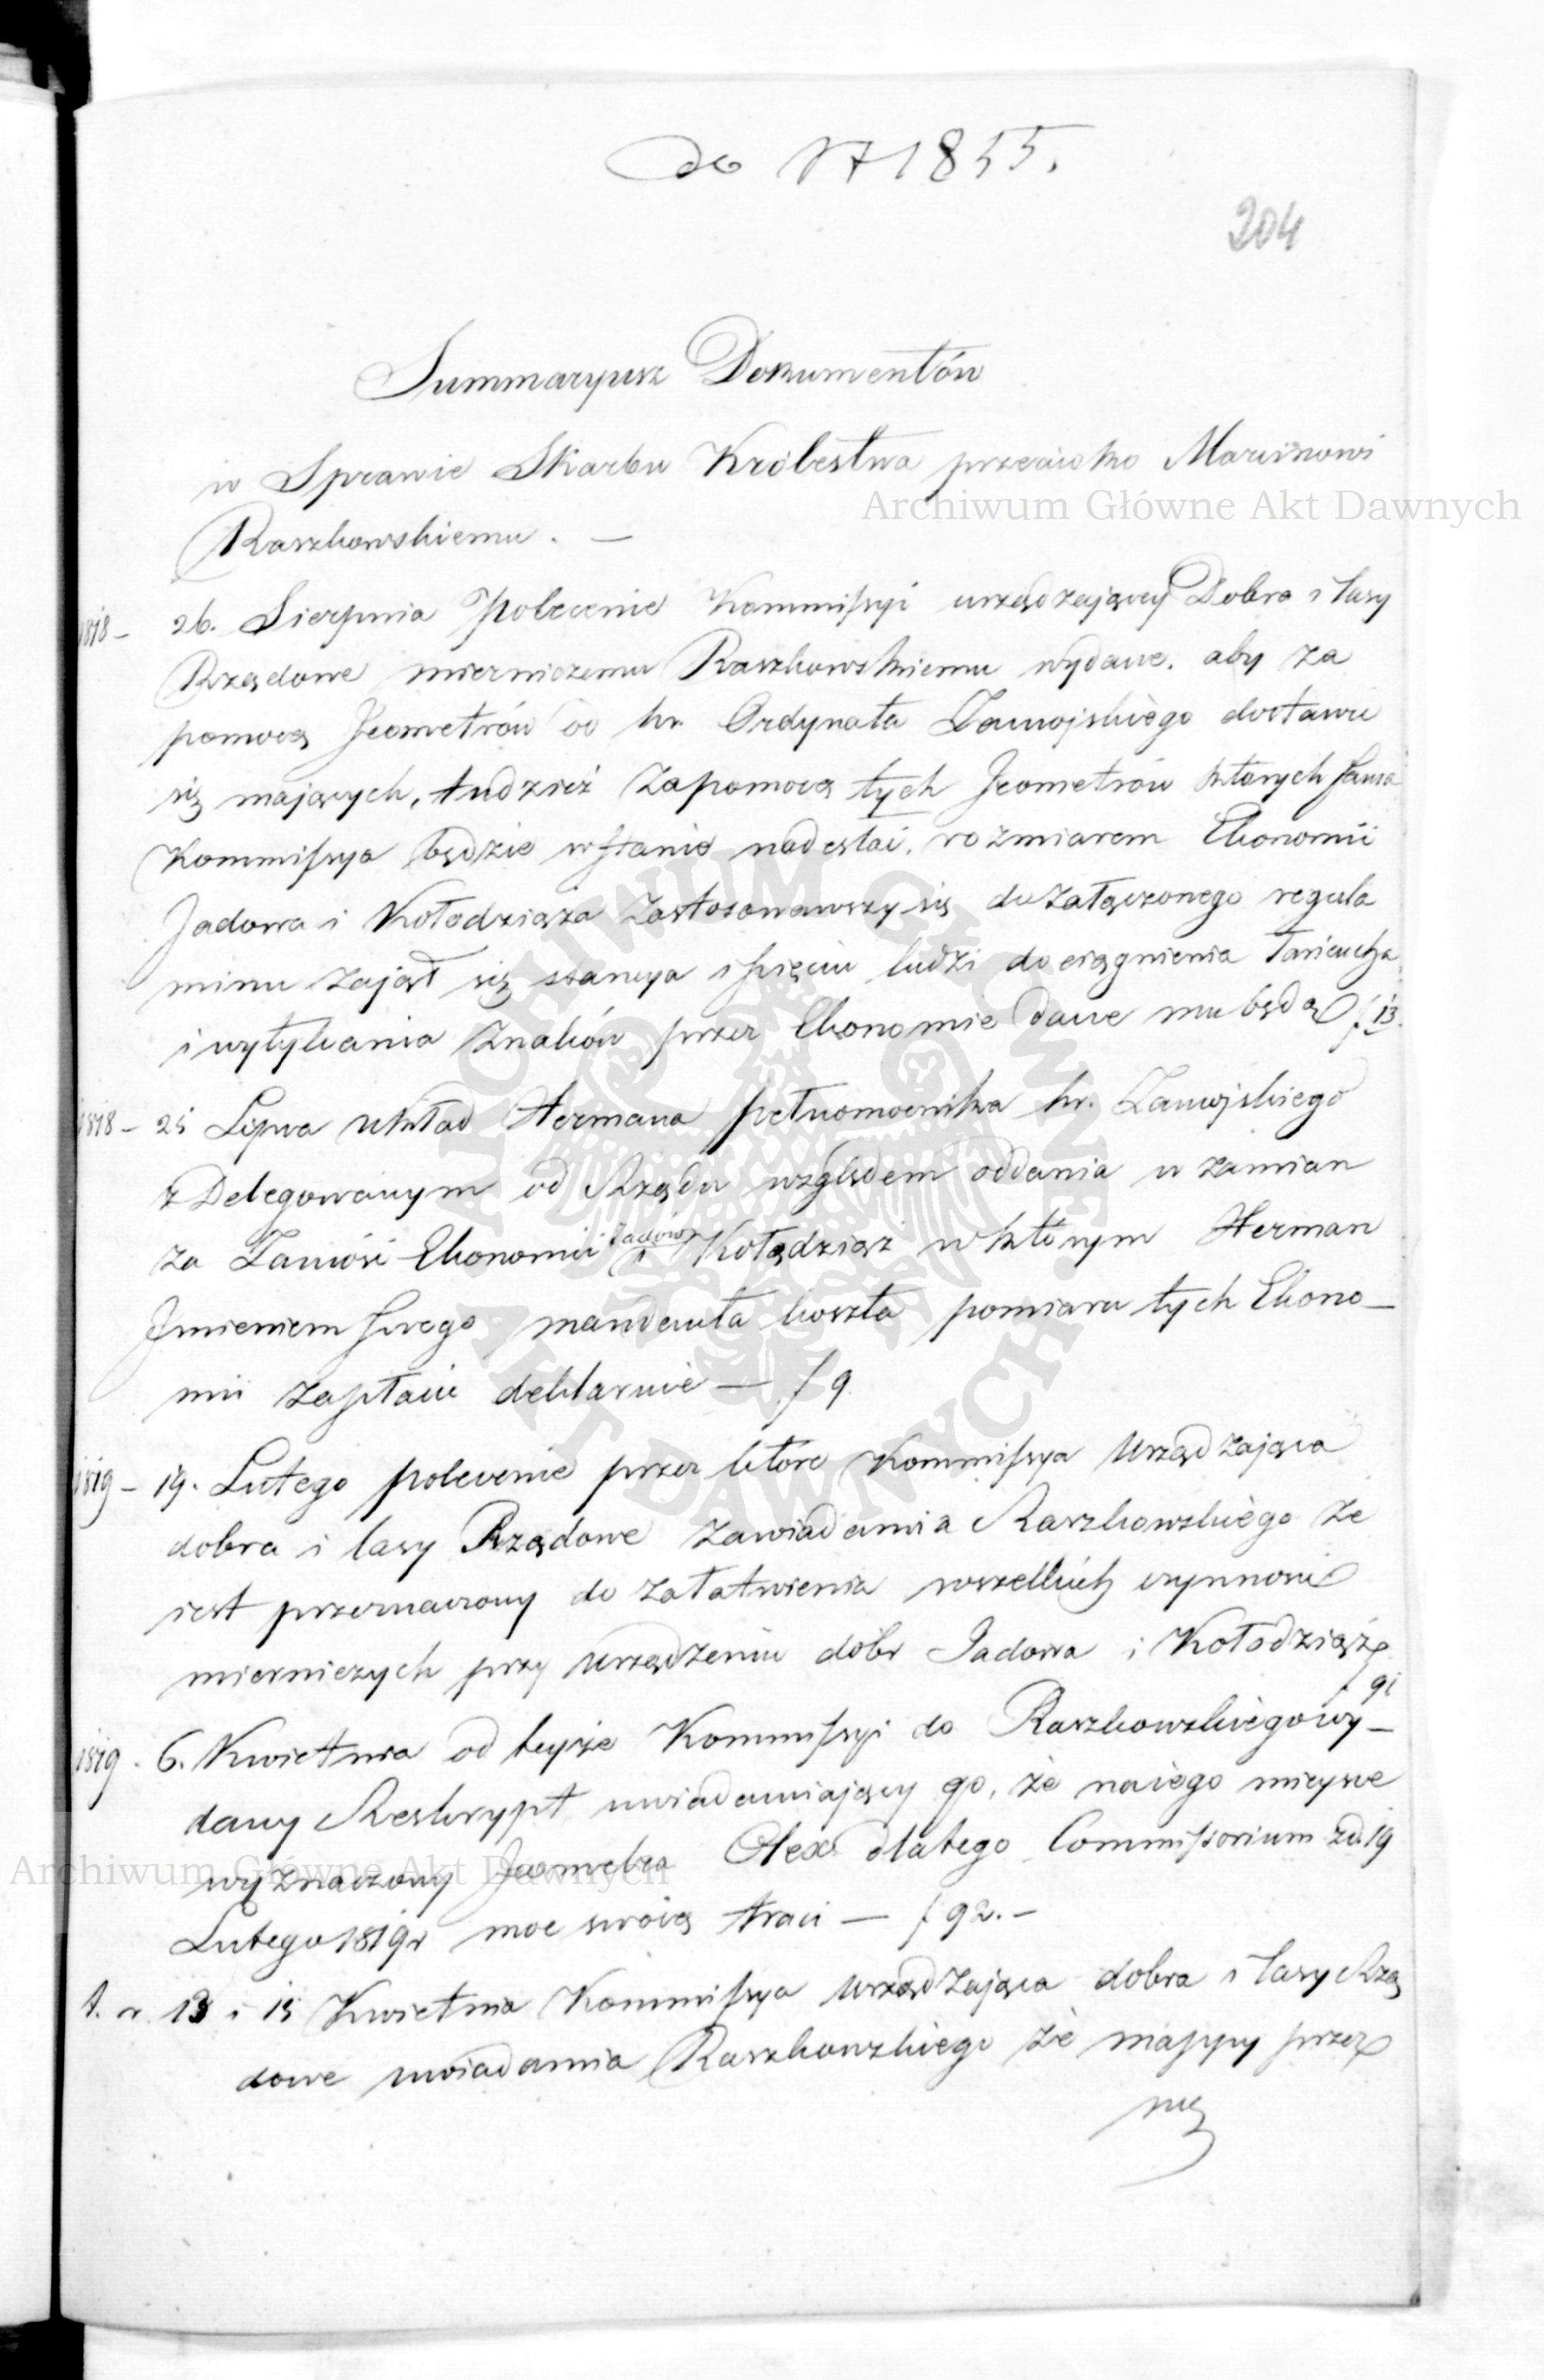 do 171855.
204
Summaryusz Dokumentów
w Sprawie Skarbu Królestwa przeciwko Marcinowi
Archiwum Główne Akt Dawnych
Raszkowskiemu. —
1818 – 26. Sierpnia Polecenie Kommissyi urządzającey Dobra i lasy
Rządowe mierniczemu Raszkowskiemu wydane. aby za
pomocą Jeometrów od hr. Ordynata Zamojskiego dostawić
się mających, tudzież zapomocą tych Jeometrów których sama
Kommissya będzie wstanie nadesłać. rozmiarem Ekonomii
Jadowa i Kołodziąża zastosowawszy się do załączonego regula
minu zajął się stancya i pięciu ludzi do ciągnienia łańcucha
i wytykania znaków przez Ekonomie dane mu będą f 13.
1818 – 25 Lipca układ Hermana pełnomocnika hr. Zamojskiego
z Delegowanym od Rządu względem oddania w zamian
za Zamość Ekonomii Jadów i Kołądziąż w którym Herman
Jmieniem swego mandanta koszta pomiaru tych Ekono–
mii zapłacić deklaruie — f 9
1819 – 19. Lutego polecenie przez które Kommissya Urządzająca
dobra i lasy Rządowe zawiadamia Raszkowskiego że
iest przeznaczony do załatwienia wszelkich czynności
mierniczych przy urządzeniu dóbr Jadowa i Kołodziąż
f 91
1819. 6. Kwietnia od teyże Kommissyi do Raszkowskiego wy–
dany Reskrypt uwiadamiaiący go, że na iego mieysce
wyznaczony Jeometra Olex dlatego Commissorium zd. 19
Archiwum Główne Akt Dawnych
Lutego 1819 r moc swoią traci — f 92. –
t. r. 13 i 15 Kwietnia Kommissya urządzaiąca dobra i lasy Rzą
dowe uwiadamia Raszkowskiego że mappy przez
nię
ARCHIWUM GŁÓWNE AKT DAWNYCH